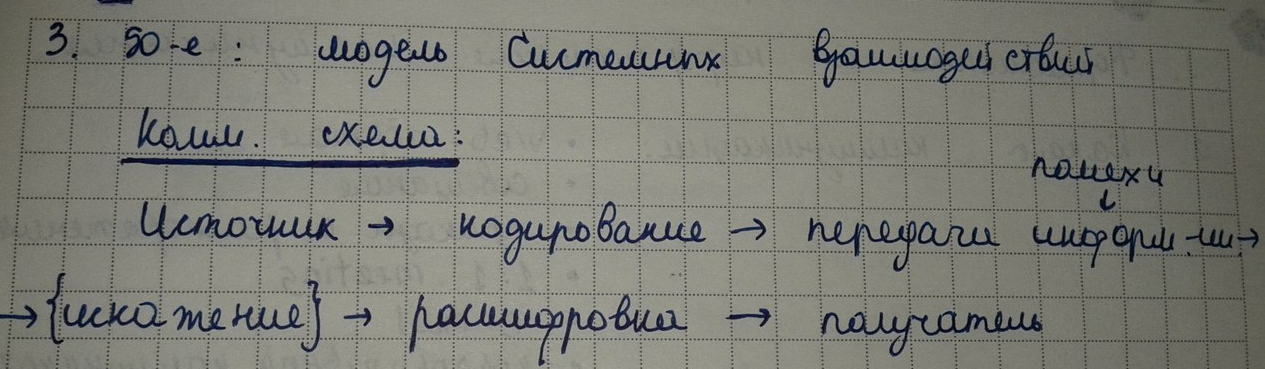 3. 50-е: модель Системных взаимодействий
Комм. схема:
помехи
↓
Источник → кодирование → передачи информ-ии →
→ {искажение} → расшифровка → получатель